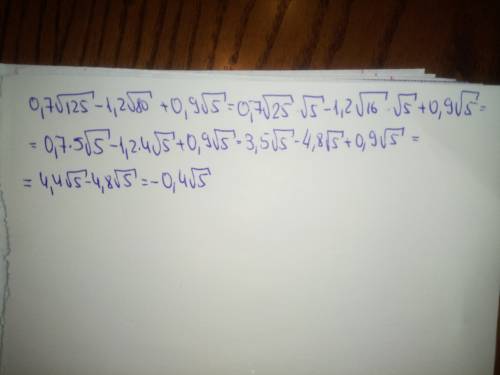 0,7√125-1,2√80+0,9√5=0,7√25·√5-1,2√16·√5+0,9√5=
=0,7·5√5-1,2·4√5+0,9√5=3,5√5-4,8√5+0,9√5=
=4,4√5-4,8√5=-0,4√5